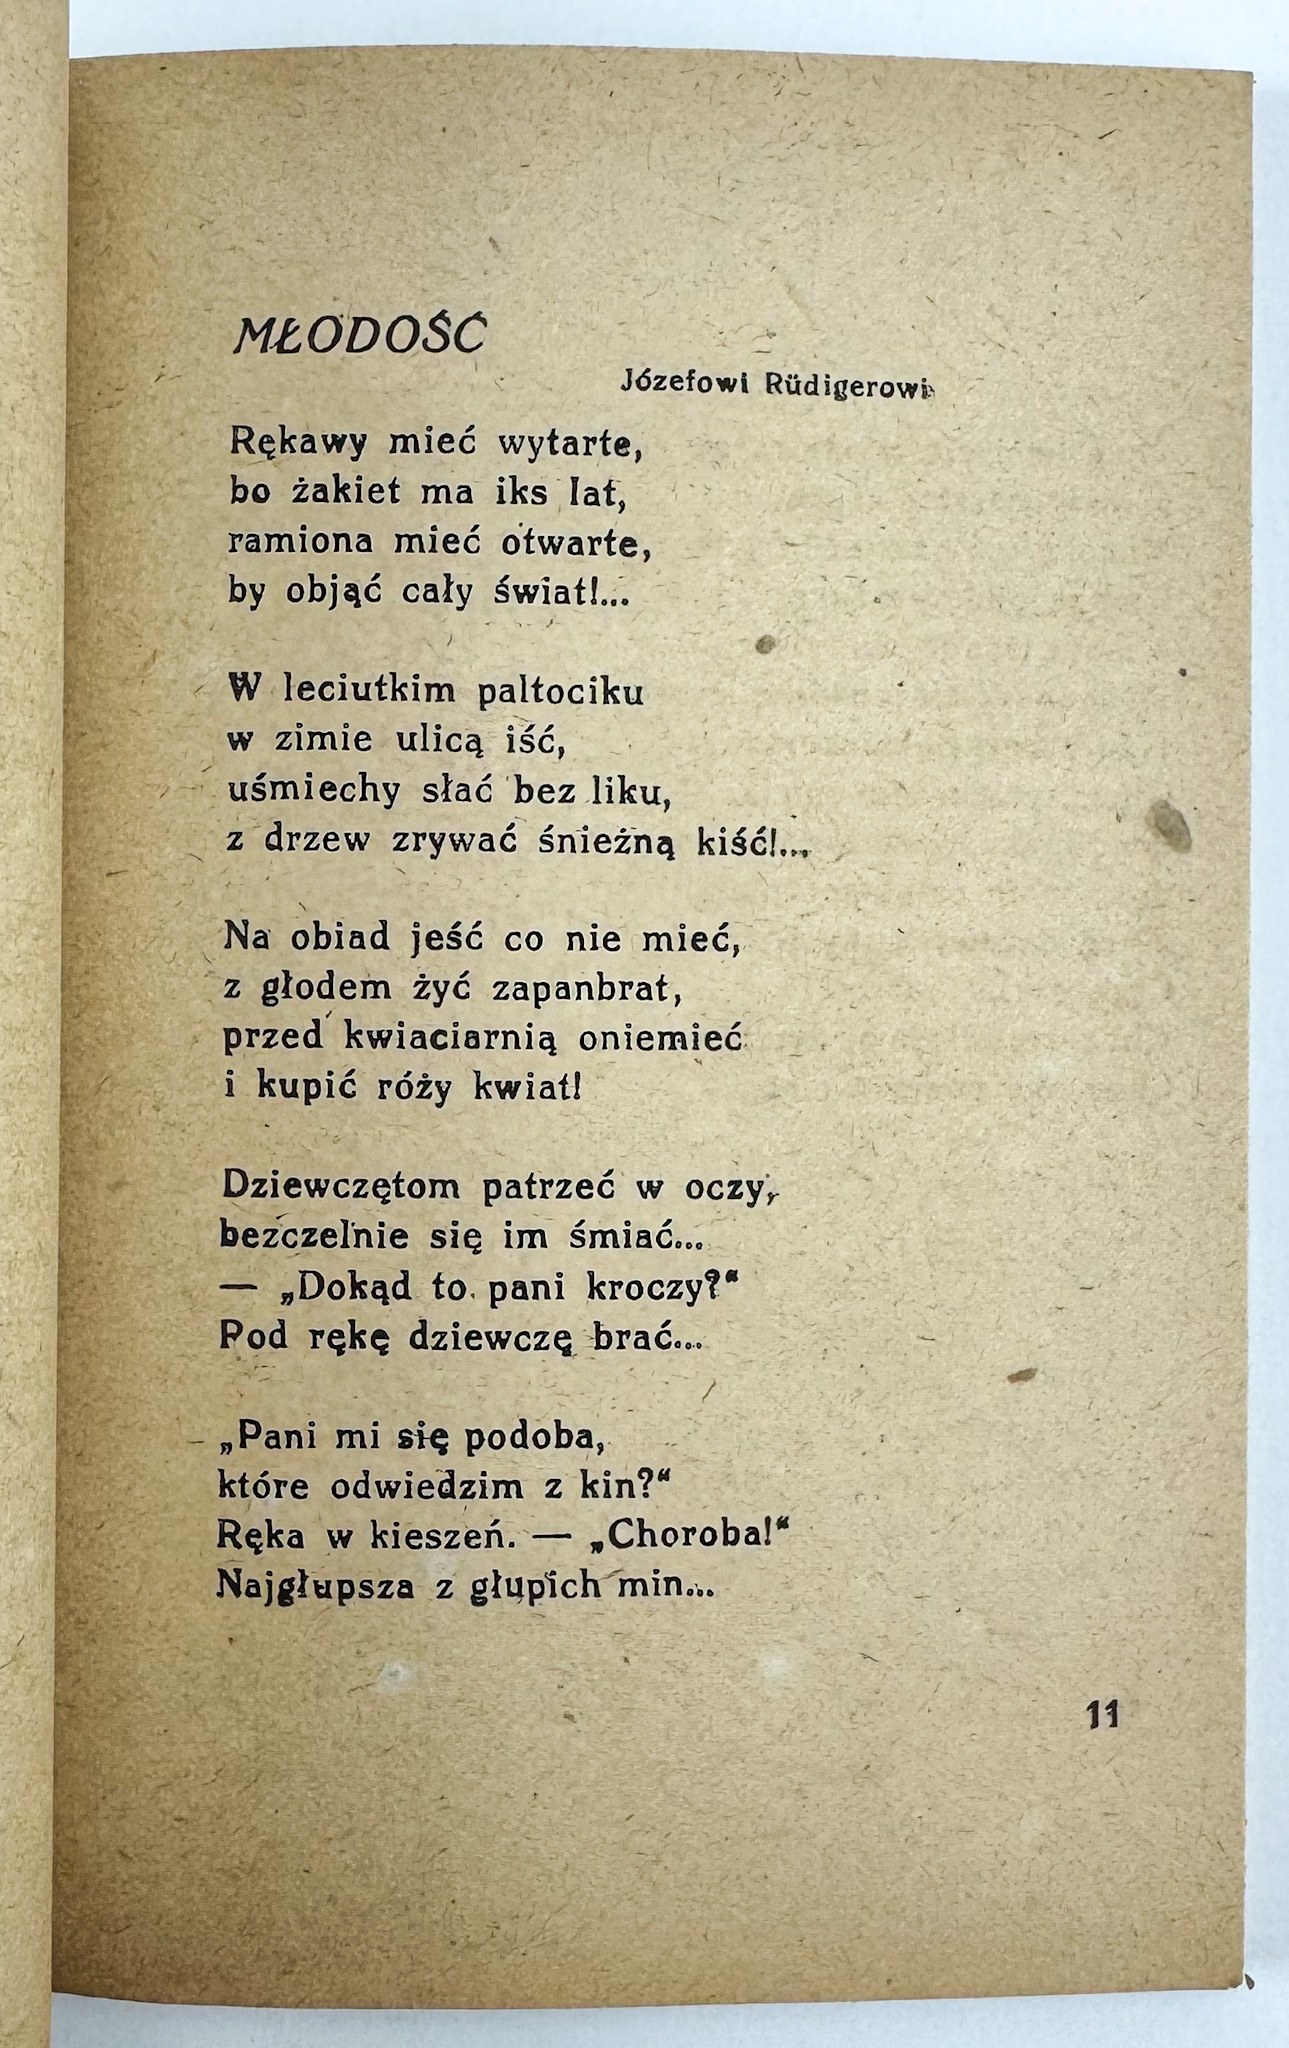 MŁODOŚĆ
Józefowi Rüdigerowi
Rękawy mieć wytarte,
bo żakiet ma iks lat,
ramiona mieć otwarte,
by objąć cały świat!...
W leciutkim paltociku
w zimie ulicą iść,
uśmiechy słać bez liku,
z drzew zrywać śnieżną kiść!...
Na obiad jeść co nie mieć,
z głodem żyć zapanbrat,
przed kwiaciarnią oniemieć
i kupić róży kwiat!
Dziewczętom patrzeć w oczy,
bezczelnie się im śmiać...
— „Dokąd to pani kroczy?“
Pod rękę dziewczę brać...
„Pani mi się podoba,
które odwiedzim z kin?“
Ręka w kieszeń. — „Choroba!“
Najgłupsza z głupich min...
11